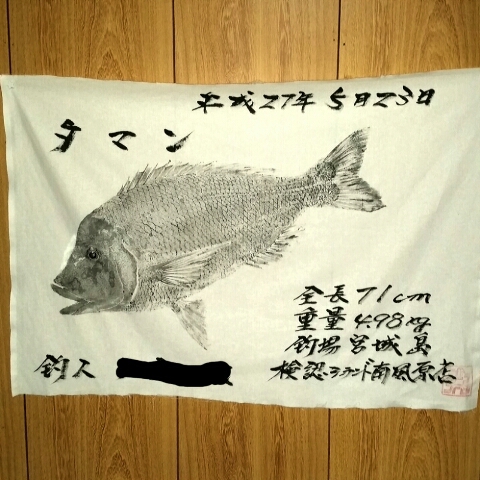 平成27年5月23日
タマン
全長71cm
重量4.98kg
釣場宮城島
検認 ランド南風原店
釣人